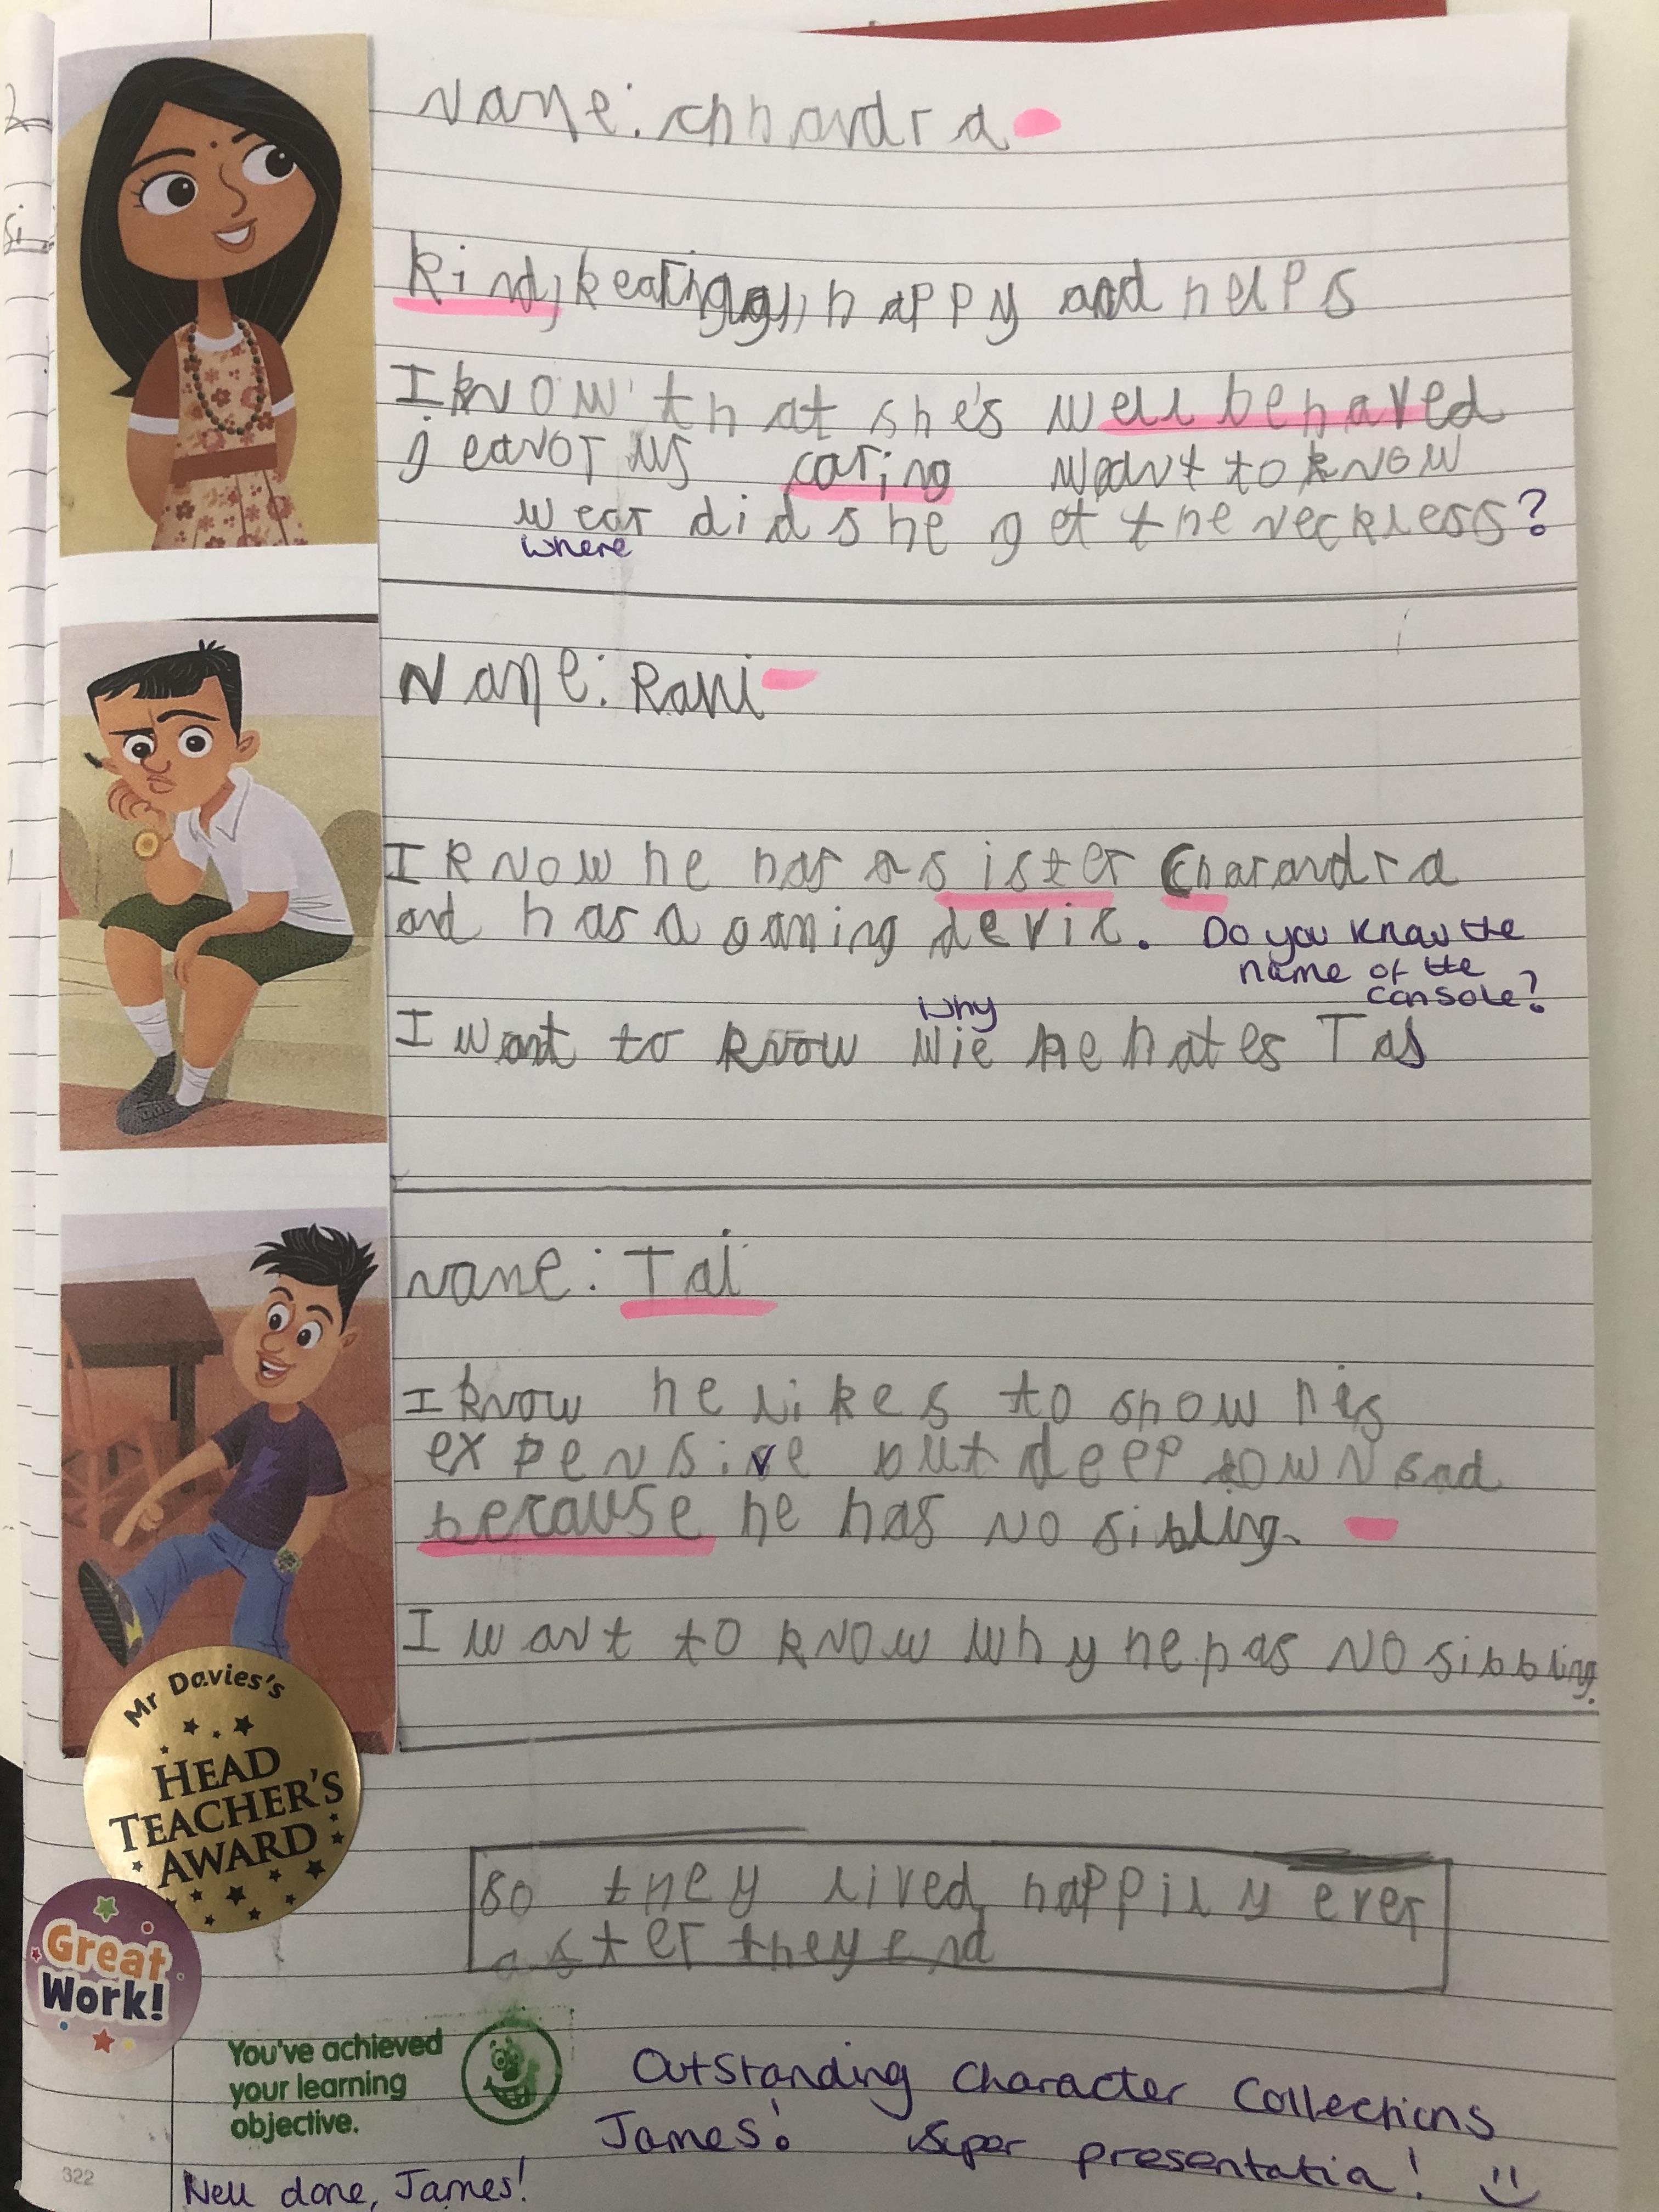 Name: chhandra
kind, kearing, happy and helps
I know that she's well behaved
jeavor us caring want to know
wear did she get the neckless?
where
Name: Rani
I know he has a sister Charandra
and has a gaming devic. Do you know the
name of the
console?
why
I want to know wie he hates Tas
name: Tai
I know he likes to show his
expensive but deep down sad
because he has no sibling.
I want to know why he has no sibbling.
Mr Davies's
HEAD
TEACHER'S
AWARD
so they lived happily ever
aster they end
Great
Work!
You've achieved
your learning
objective.
Outstanding Character Collections
James! Super presentation!
Well done, James!
322